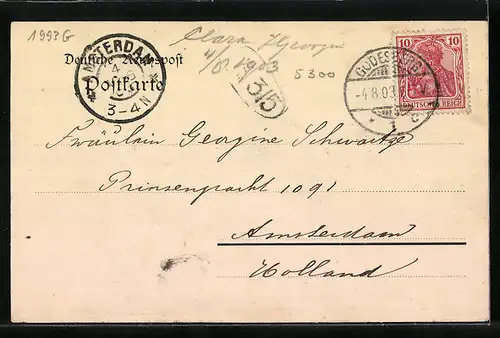 1993G
Clara
4/8. 1903
5300
Deutsche Reichspost
Postkarte
AMSTERDAM
3-4N
315
GODESBERG
-4.8.03
1 c
10 10
DEUTSCHES REICH
Fräulein Georgine Schwartze
Prinsengracht 1091
Amsterdam
Holland